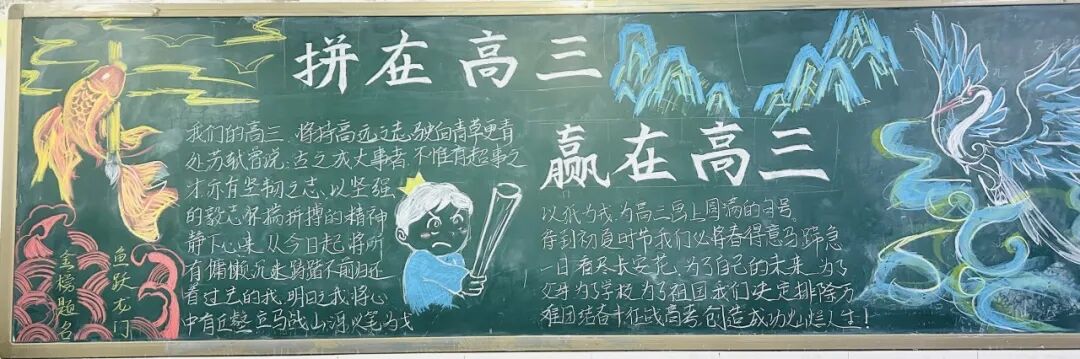 拼在高三
我们的高三、将持高远之志驶向青草更青
处苏轼曾说:古之成大事者,不惟有超事之
才亦有坚韧之志、以坚强
的毅志怀揣拼搏的精神
静下心来、从今日起将所
有慵懒、沉迷踌躇不前归还
着过去的我,明日之我将心
中有丘壑立马战山河以笔为戈
鱼跃龙门
金榜题名
赢在高三
以纸为戎,为高三画上圆满的句号。
待到初夏时节我们必将春得意马蹄急
一日看尽长安花、为了自己的未来、为了
父母为了学校为了祖国我们决定排除万
难团结奋斗征战高考创造成功灿烂人生!